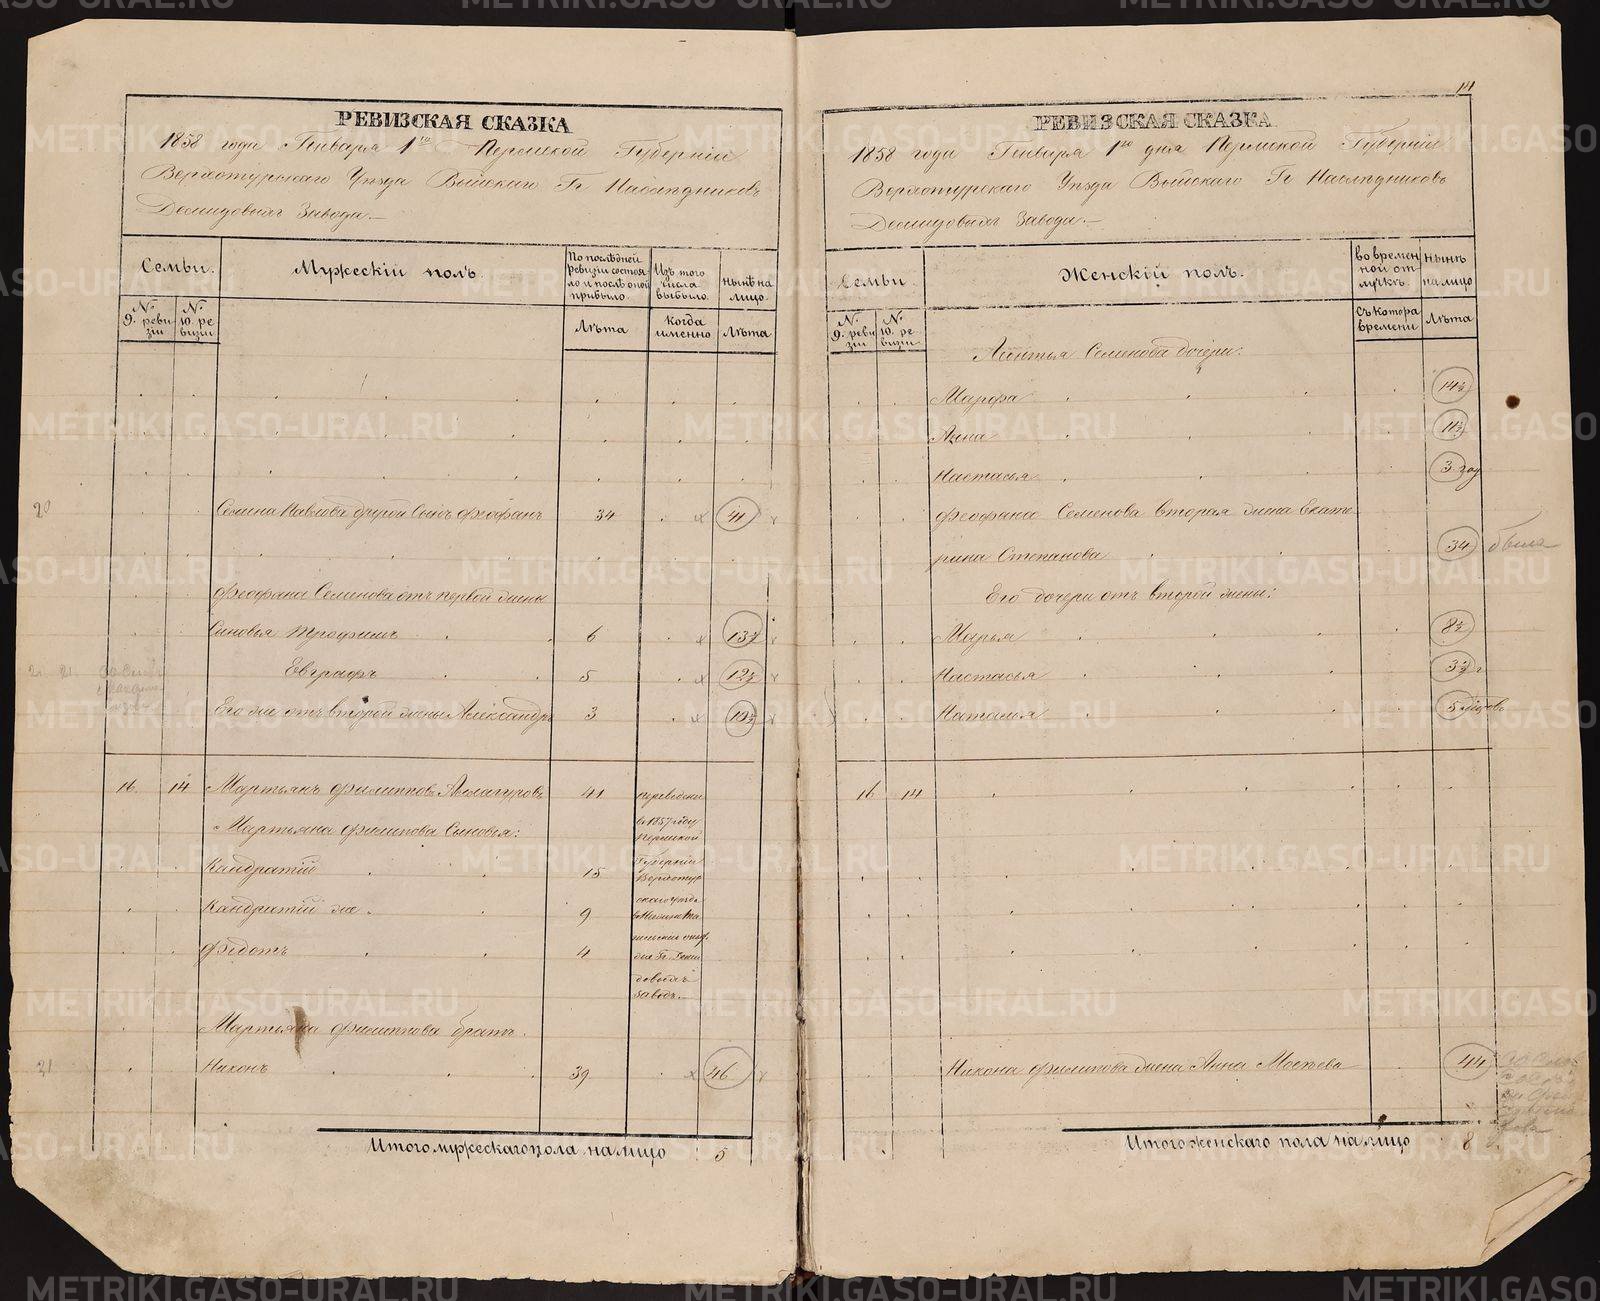 РЕВИЗСКАЯ СКАЗКА
1858 года Генваря 1го Пермской Губерніи
Верхотурскаго Уѣзда Выйскаго Гг Наслѣдниковъ
Демидовыхъ Завода.
Семьи.
Мужескій полъ.
По послѣдней ревизіи состояло и послѣ оной прибыло.
Изъ того числа выбыло
нынѣ на лицо.
№ 9. ревизіи
№ 10. ревизіи
Лѣта
Когда именно
Лѣта
20
Семена Павлова другой Сынъ Феофанъ 34 41
Феофана Семенова отъ первой жены
Сыновья Трофимъ 6 13½
Евграфъ 5 12½
Его же отъ второй жены Александръ 3 10½
16 14 Мартьянъ Филипповъ 41
Мартьяна Филипова Сыновья:
Кандратій 15
Кандратій же 9
Федотъ 4
переведены
въ 1857 году
Пермской
Губерніи
Верхотур
скаго Уѣзда
довыхъ
заводъ.
Мартьяна Филиппова братъ
21
Никонъ 39 46
Итого мужескаго пола на лицо 5
РЕВИЗСКАЯ СКАЗКА
1858 года Генваря 1го дня Пермской Губерніи
Верхотурскаго Уѣзда Выйскаго Гг Наслѣдниковъ
Демидовыхъ Завода.
Семьи.
Женскій полъ.
во временной отлучкѣ.
нынѣ на лицо
№ 9. ревизіи
№ 10. ревизіи
Съ котора времени
Лѣта
Леонтья Семенова дочери:
Марфа 14½
Анна 11½
Настасья 3 год
Феофана Семенова вторая жена Екате
рина Степанова 34 была
Его дочери отъ второй жены:
Марья 8½
Настасья 3½ г
Наталья 5
16 14
Никона Филипова жена Анна 44
Итого женскаго пола на лицо 8
METRIKI.GASO-URAL.RU